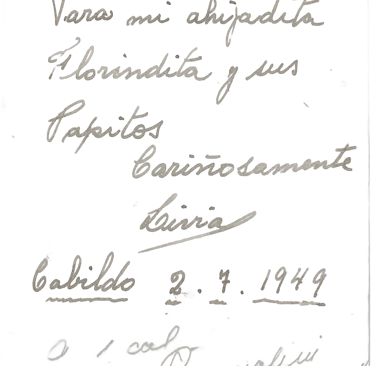 Para mi ahijadita
Florindita y sus
Papitos
Cariñosamente
Livia
Cabildo 2.7.1949